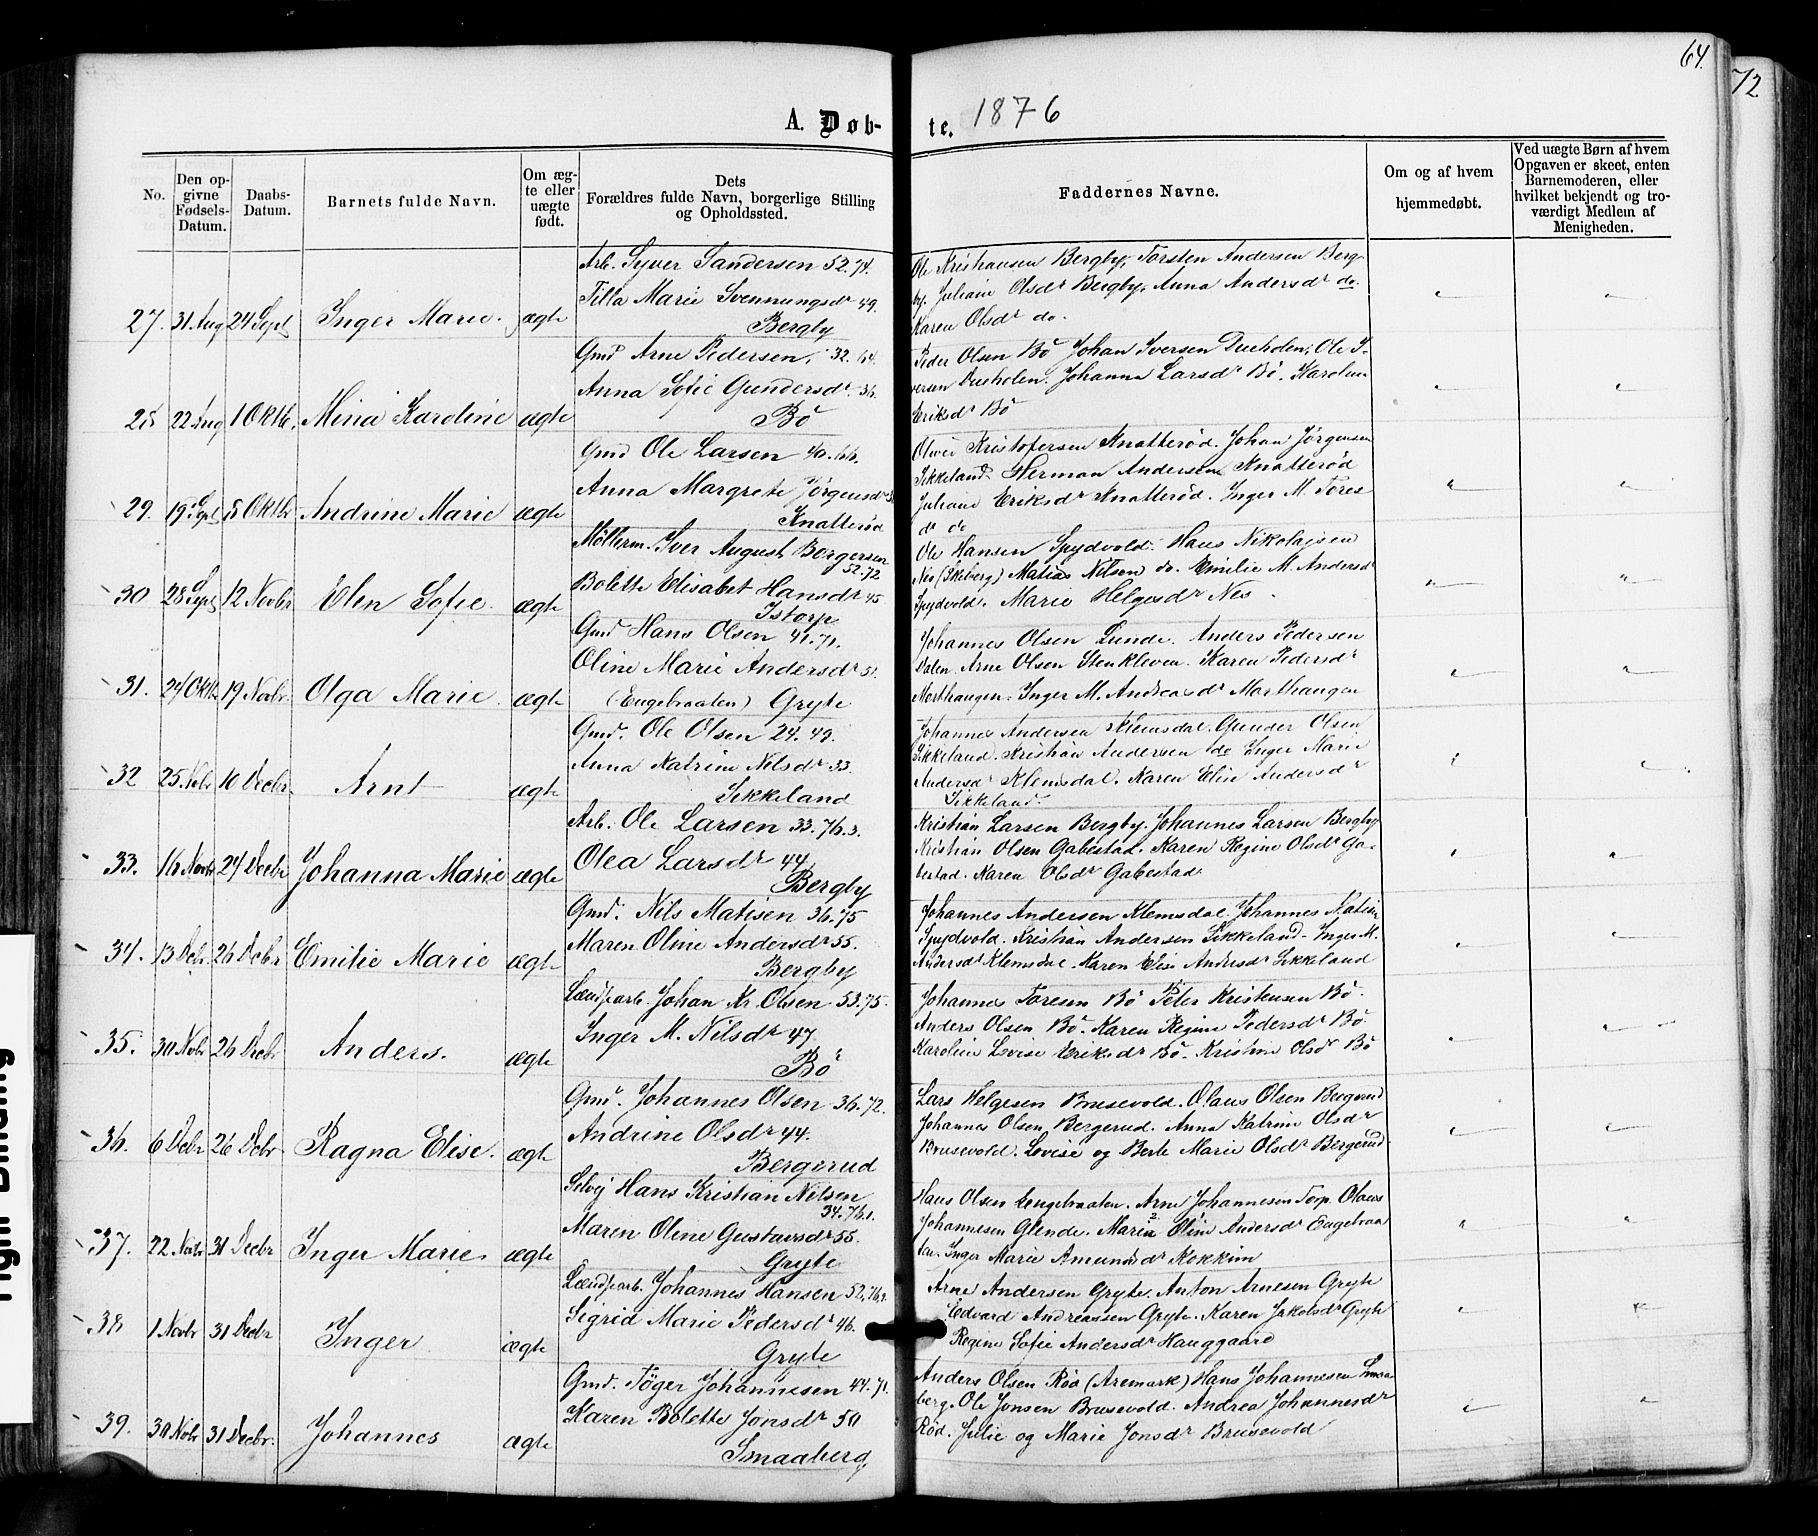 64.
72
A. Døb-
te. 1876
No.
Den op-
givne
Fødsels-
Datum.
Daabs-
Datum.
Barnets fulde Navn.
Om æg-
te eller
uægte
født.
Dets
Forældres fulde Navn, borgerlige Stilling
og Opholdssted.
Faddernes Navne.
Om og af hvem
hjemmedøbt.
Ved uægte Børn af hvem
Opgaven er skeet, enten
Barnemoderen, eller
hvilket bekjendt og tro-
værdigt Medlem af
Menigheden.
27. 31 Aug 24 Sept Inger Marie. ægte
Arb. Syver Sandersen 52.74.
Tilla Marie Svennungsdr 49.
Bergby
Ole Kristiansen Bergby, Torsten Andersen Berg-
by. Juliane Olsdr Bergby, Anna Andersdr do.
Karen Olsdr do.
28 22 Aug 1 Oktb. Mina Karoline ægte
Gmd Arne Pedersen, 32.64.
Anna Sofie Gundersdr 36.
Bö
Peder Olsen Bö Johan Iversen Dusholen, Ole I-
versen Dusholen. Johanna Larsdr Bö. Karoline
Eriksdr Bö
29. 19 Sept 8 Oktbr Andrine Marie ægte
Gmd Ole Larsen 40.66.
Anna Margrete Jørgensdr
Knatterød
Oliver Kristofersen Knatterød. Johan Jørgensen
Sikkeland Herman Andersen Knatterød
Juliane Eriksdr Knatterød. Inger M. Tores
dr do
30 28 Sept 12 Novbr Elen Sofie. ægte
Møllerm. Iver August Borgersen
52.72
Bolette Elisabet Hansdr 45
Istorp
Ole Hansen Spydvold. Hans Nikolajsen
Nes (Skeberg) Matias Nilsen do. Emilie M. Andersdr
Spydvold. Marie Helgesdr Nes.
31. 24 Oktbr 19 Novbr. Olga Marie. ægte
Gmd Hans Olsen 41.71.
Oline Marie Andersdr 51.
(Engebraaten) Gryte
Johannes Olsen Lunde. Anders Pedersen
Dalen. Arne Olsen Stenkleven. Karen Pedersdr
Morthaugen. Inger M. Andreasdr Morthaugen
32 25 Novbr 10 Decbr. Arnt ægte
Gmd. Ole Olsen 24.49.
Anna Katrine Nilsdr 33.
Sikkeland
Johannes Andersen Klemsdal. Gunder Olsen
Sikkeland. Kristian Andersen do Inger Marie
Andersdr Klemsdal. Karen Elise Andersdr
Sikkeland.
33. 16 Novbr 24 Decbr Johanna Marie ægte
Arb. Ole Larsen 33.76.3.
Olea Larsdr 44.
Bergby
Kristian Larsen Bergby. Johannes Larsen Bergby
Kristian Olsen Gabestad. Karen Regine Olsdr Ga-
bestad. Karen Olsdr Gabestad.
34. 13 Decbr. 26 Decbr Emilie Marie ægte
Gmd. Nils Matisen 36.75
Maren Oline Andersdr 55.
Bergby
Johannes Andersen Klemsdal. Johannes Matisn
Spydvold. Kristian Andersen Sikkeland. Inger M.
Andersdr Klemsdal. Karen Elise Andersdr Sikkeland
35. 30 Novbr 26 Decbr Anders. ægte
Lændsarb. Johan Kr. Olsen 53.75.
Inger M. Nilsdr 47
Bö
Johannes Toresen Bö Peter Kristensen Bö.
Anders Olsen Bö. Karen Regine Pedersdr Bö.
Karoline Lovise Eriksdr Bö. Kristine Olsdr Bö
36. 6 Decbr 26 Decbr Ragna Elise. ægte
Gmd. Johannes Olsen 36.72.
Andrine Olsdr 44.
Bergerud
Lars Helgesen Brusevold. Olaus Olsen Bergerud
Johannes Olsen Bergerud. Anna Katrine Olsdr
Brusevold. Lovise og Berte Marie Olsdr Bergerud
37. 22 Novbr 31 Decbr Inger Marie. ægte
Selvej Hans Kristian Nilsen
34.76.1.
Maren Oline Gustavsdr 55.
Gryte
Hans Olsen Engebraaten. Arne Johannesen Torp Olaus
Johannesen Glende. Maria Olin Andersdr Engebraa
ten. Inger Marie Amundsdr Kokkim
38 1 Novbr 31 Decbr Inger ægte
Lændsarb. Johannes Hansen 52.76.
Sigrid Marie Pedersdr 46.
Gryte
Arne Andersen Gryte. Anton Arnesen Gryte
Edvard Andreassen Gryte. Karen Jakobsdr Gryte
Regine Sofie Andersdr Hauggaard
39. 30 Novbr 31 Decbr. Johannes ægte
Gmd. Töger Johannesen 44.71.
Karen Bolette Jonsdr 50
Smaaberg
Anders Olsen Rød (Aremark) Hans Johannesen Smaa
berg. Ole Jonsen Brusevold. Andrea Johannesdr
Rød. Julie og Marie Jonsdr Brusevold